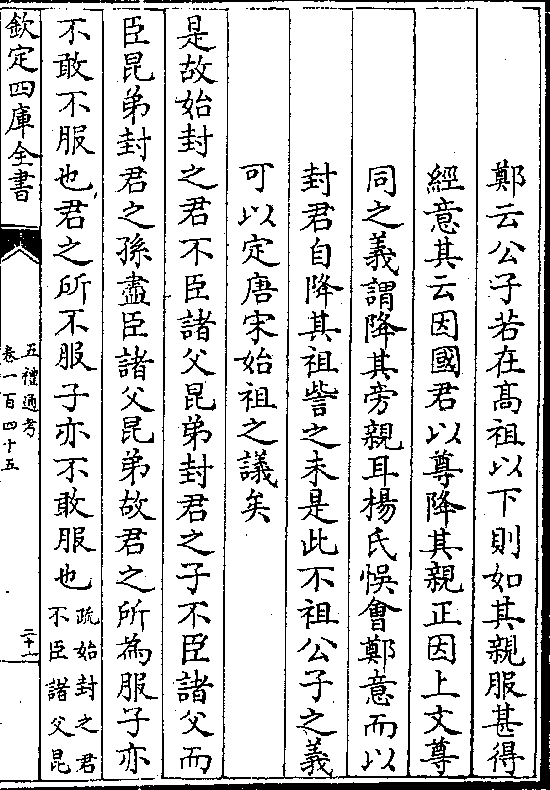 鄭云公子若在髙祖以下則如其親服甚得
經意其云因國君以尊降其親正因上文尊
同之義謂降其旁親耳楊氏悞會鄭意而以
封君自降其祖訾之未是此不祖公子之義
可以定唐宋始祖之議矣
是故始封之君不臣諸父昆弟封君之子不臣諸父而
臣昆弟封君之孫盡臣諸父昆弟故君之所為服子亦
不敢不服也君之所不服子亦不敢服也
疏始封之君
不臣諸父昆
欽定四庫全書
五禮通考
卷一百四十五